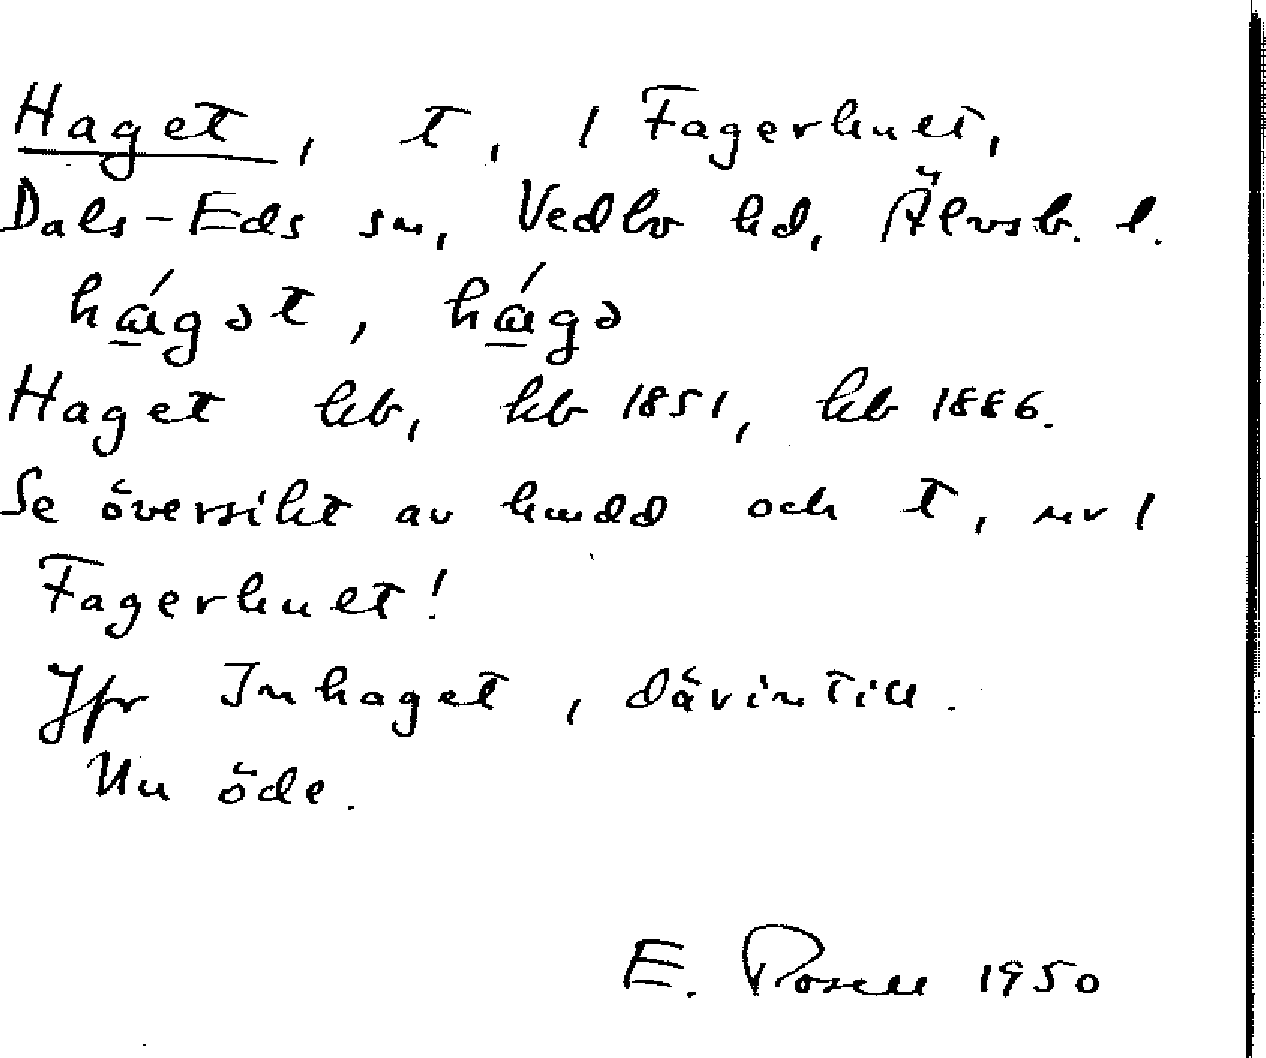 Haget, t, 1 Fagerhult,
Dals-Eds sn, Vedbo hd, Älvsb. l.
hágət, hágə
Haget hb, kb 1851, kb 1886.
Se översikt av hmdd och t, nr 1
Fagerhult!
Jfr Inhaget, därintill.
Nu öde.
E. Rosell 1950